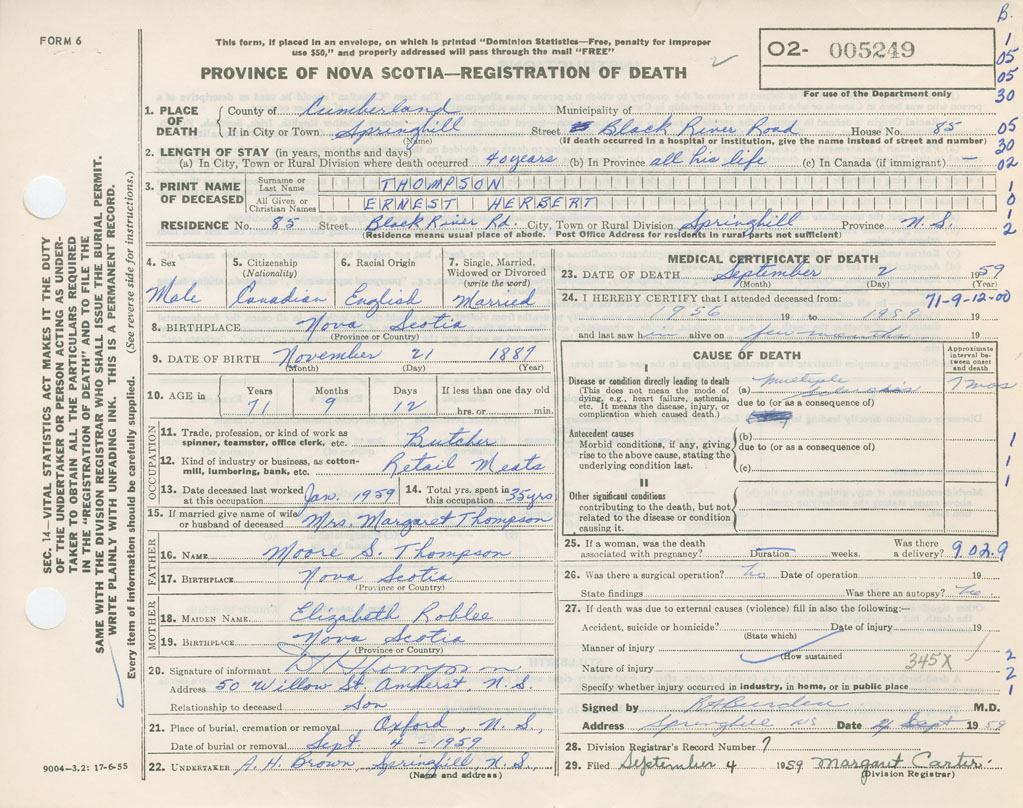 FORM 6
This form, if placed in an envelope, on which is printed "Dominion Statistics—Free, penalty for improper
use $50," and properly addressed will pass through the mail "FREE"
PROVINCE OF NOVA SCOTIA—REGISTRATION OF DEATH
O2- 005249
For use of the Department only
B.
1
05
05
30
05
30
02
1
0
1
2
1. PLACE OF DEATH
County of Cumberland Municipality of
If in City or Town Springhill Street Black River Road House No. 85
(Name) (If death occurred in a hospital or institution, give the name instead of street and number)
2. LENGTH OF STAY (in years, months and days)
(a) In City, Town or Rural Division where death occurred 40 years (b) In Province all his life (c) In Canada (if immigrant) —
3. PRINT NAME OF DECEASED
Surname or Last Name THOMPSON
All Given or Christian Names ERNEST HERBERT
RESIDENCE No. 85 Street Black River Rd. City, Town or Rural Division Springhill Province N.S.
(Residence means usual place of abode. Post Office Address for residents in rural parts not sufficient)
4. Sex 5. Citizenship (Nationality) 6. Racial Origin 7. Single, Married, Widowed or Divorced (write the word)
Male Canadian English Married
8. BIRTHPLACE Nova Scotia
(Province or Country)
9. DATE OF BIRTH November 21 1887
(Month) (Day) (Year)
10. AGE in Years Months Days If less than one day old
71 9 12 hrs. or min.
OCCUPATION
11. Trade, profession, or kind of work as spinner, teamster, office clerk, etc. Butcher
12. Kind of industry or business, as cotton-mill, lumbering, bank, etc. Retail Meats
13. Date deceased last worked at this occupation Jan. 1959 14. Total yrs. spent in this occupation 35 yrs
15. If married give name of wife or husband of deceased Mrs. Margaret Thompson
FATHER
16. NAME Moore S. Thompson
17. BIRTHPLACE Nova Scotia
(Province or Country)
MOTHER
18. MAIDEN NAME Elizabeth Roblee
19. BIRTHPLACE Nova Scotia
(Province or Country)
20. Signature of informant Thompson
Address 50 Willow St. Amherst, N.S.
Relationship to deceased Son
21. Place of burial, cremation or removal Oxford, N.S.
Date of burial or removal Sept. 4 - 1959
22. UNDERTAKER A. H. Brown, Springhill, N.S.,
(Name and address)
9004-3.2: 17-6-55
MEDICAL CERTIFICATE OF DEATH
23. DATE OF DEATH September 2 1959
(Month) (Day) (Year)
24. I HEREBY CERTIFY that I attended deceased from: 71-9-12-00
1956 19 to 1959 19
and last saw him alive on few months 19
CAUSE OF DEATH
Approximate interval between onset and death
I
Disease or condition directly leading to death
This does not mean the mode of dying, e.g., heart failure, asthenia, etc. It means the disease, injury, or complication which caused death.)
(a) Multiple Sclerosis 7 mos
due to (or as a consequence of)
Antecedent causes
Morbid conditions, if any, giving rise to the above cause, stating the underlying condition last.
(b)
due to (or as a consequence of)
(c)
1
1
1
II
Other significant conditions
contributing to the death, but not related to the disease or condition causing it.
25. If a woman, was the death associated with pregnancy? Duration weeks. Was there a delivery? 9.02.9
26. Was there a surgical operation? No Date of operation 19
State findings Was there an autopsy? No.
27. If death was due to external causes (violence) fill in also the following:—
Accident, suicide or homicide? Date of injury 19
(State which)
Manner of injury
(How sustained
345X
Nature of injury
2
2
1
Specify whether injury occurred in industry, in home, or in public place
Signed by Burden M.D.
Address Springhill NS Date 4 Sept 1959
28. Division Registrar's Record Number 7
29. Filed September 4 1959 Margaret Carter
(Division Registrar)
SEC. 14—VITAL STATISTICS ACT MAKES IT THE DUTY
OF THE UNDERTAKER OR PERSON ACTING AS UNDER-
TAKER TO OBTAIN ALL THE PARTICULARS REQUIRED
IN THE "REGISTRATION OF DEATH" AND TO FILE THE
SAME WITH THE DIVISION REGISTRAR WHO SHALL ISSUE THE BURIAL PERMIT.
WRITE PLAINLY WITH UNFADING INK. THIS IS A PERMANENT RECORD.
Every item of information should be carefully supplied. (See reverse side for instructions.)